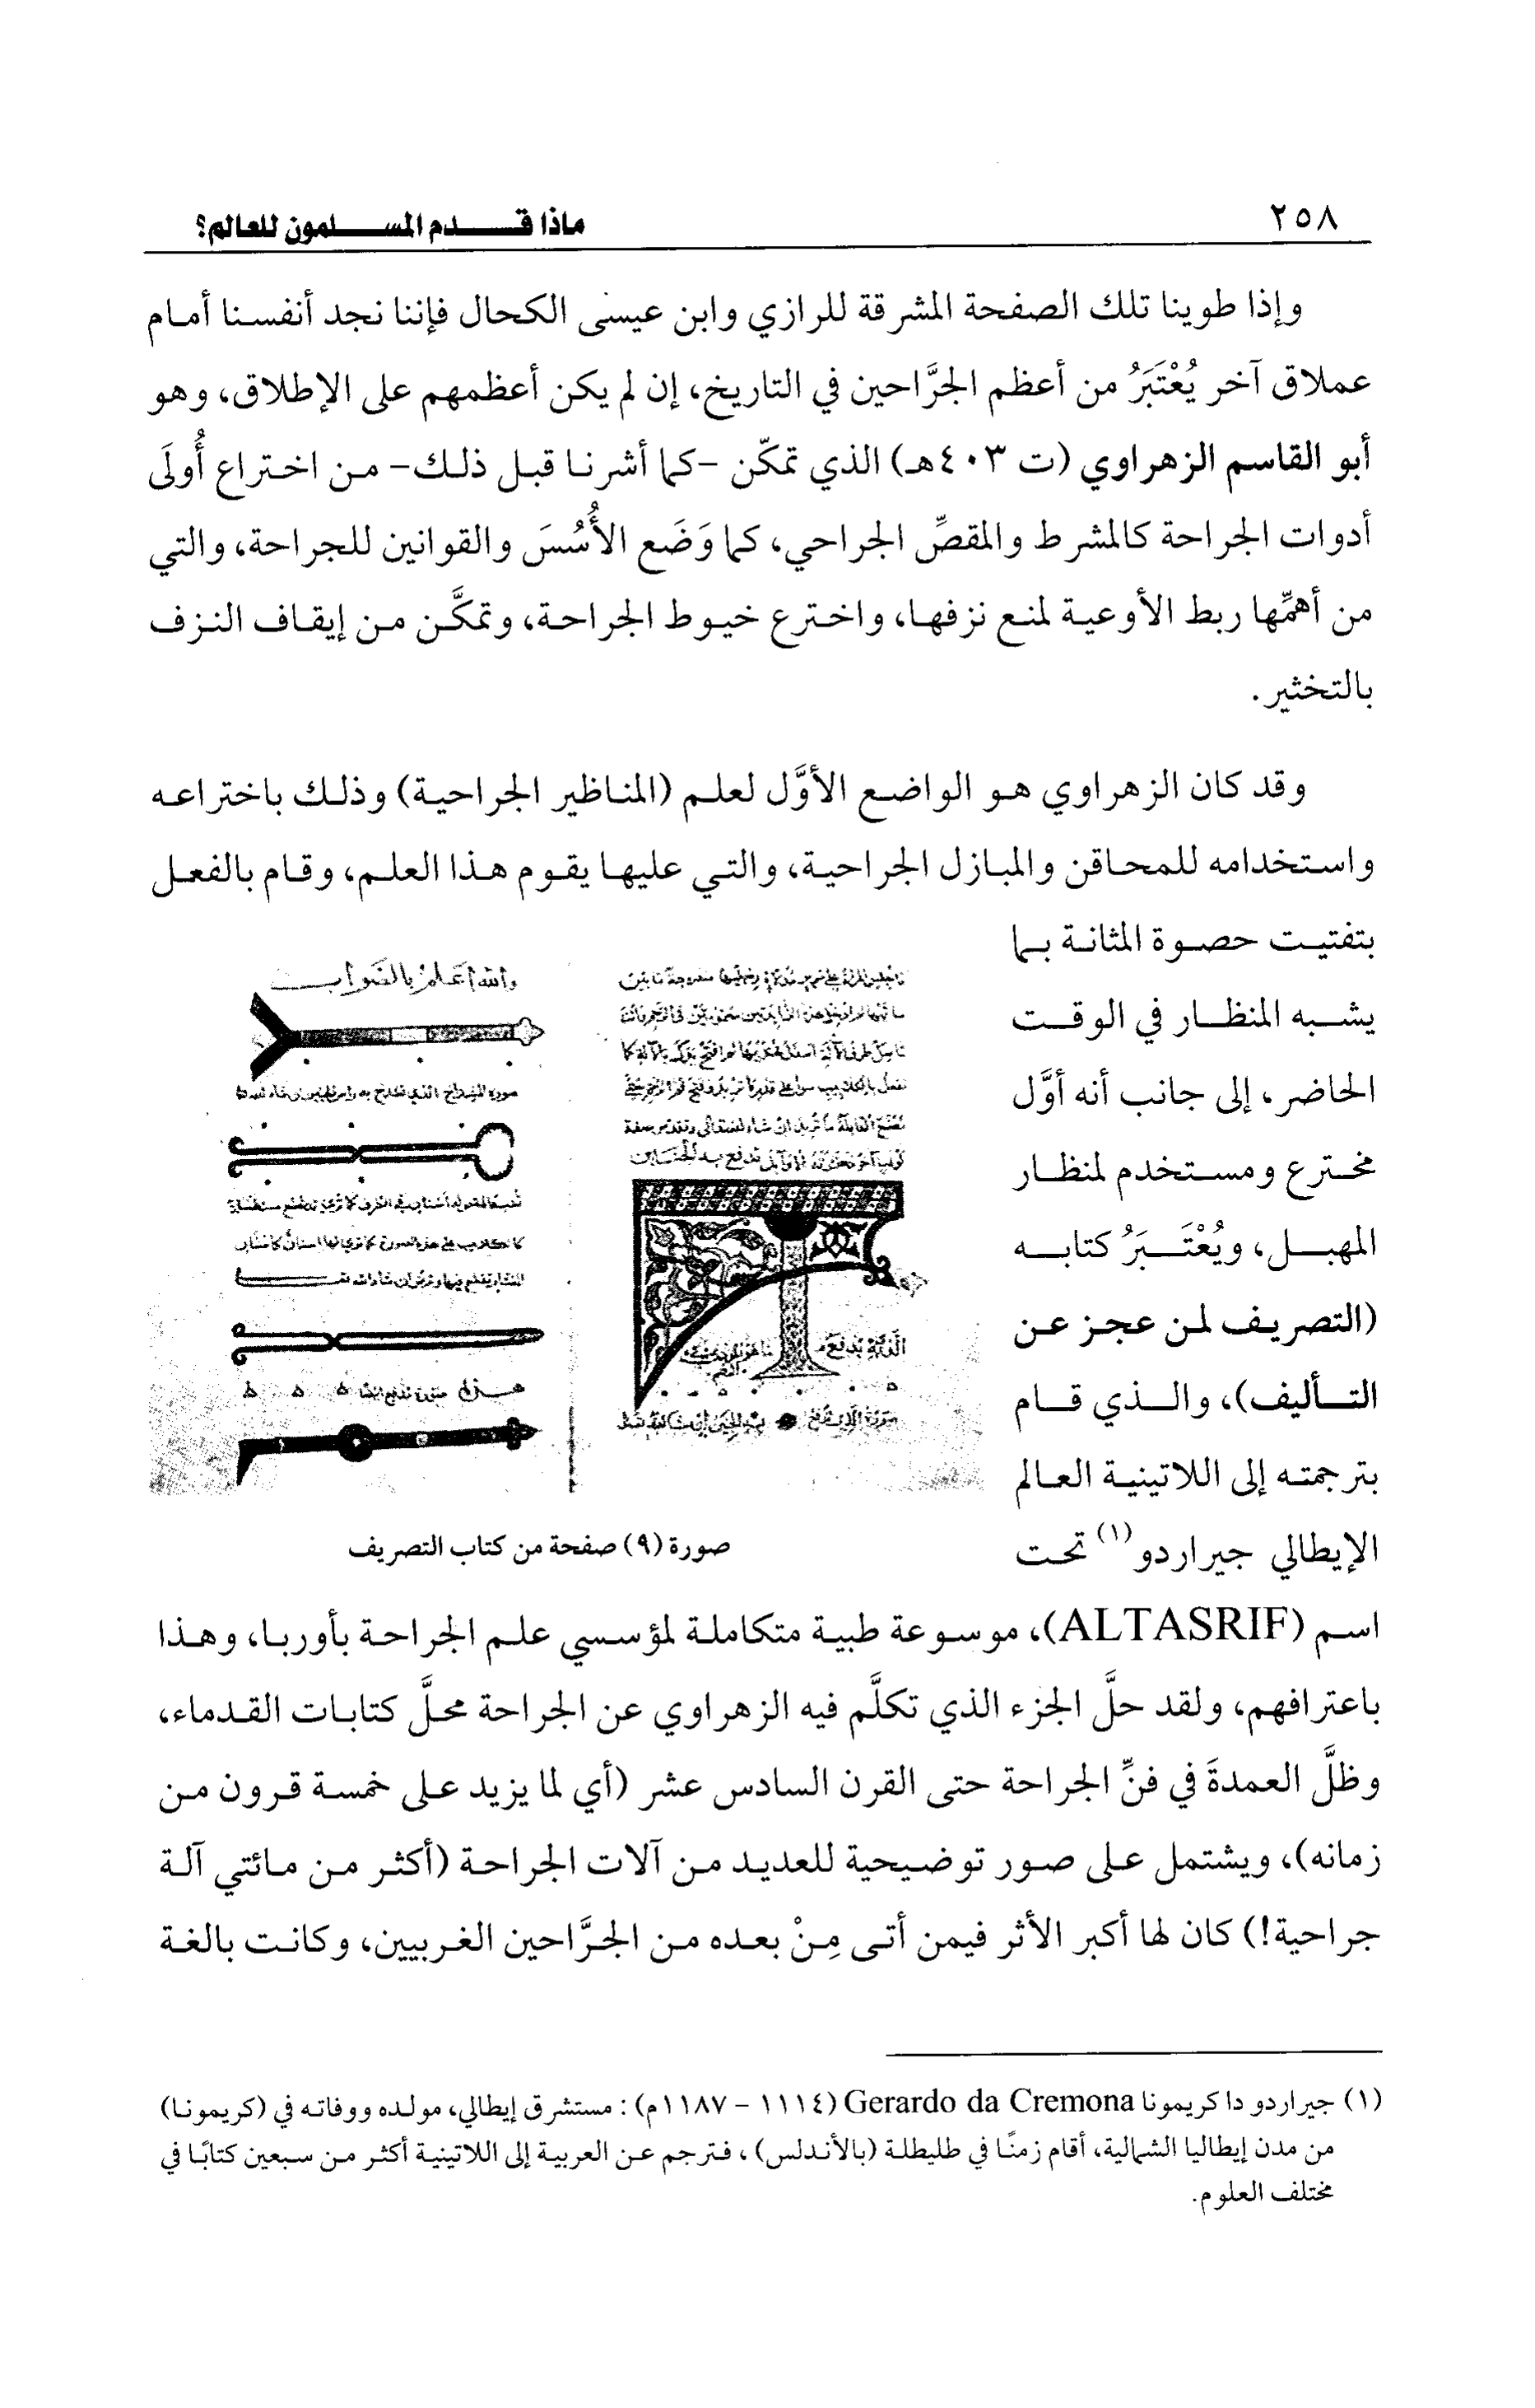 ٢٥٨
ماذا قدم المسلمون للعالم؟
وإذا طوينا تلك الصفحة المشرقة للرازي وابن عيسى الكحال فإننا نجد أنفسنا أمام
عملاق آخر يُعْتَبَرُ من أعظم الجرَّاحين في التاريخ، إن لم يكن أعظمهم على الإطلاق، وهو
أبو القاسم الزهراوي (ت ٤٠٣هـ) الذي تمكّن -كما أشرنا قبل ذلك- من اختراع أُولَى
أدوات الجراحة كالمشرط والمقصِّ الجراحي، كما وَضَع الأُسُسَ والقوانين للجراحة، والتي
من أهمِّها ربط الأوعية لمنع نزفها، واخترع خيوط الجراحة، وتمكَّن من إيقاف النزف
بالتخثير.
وقد كان الزهراوي هو الواضع الأوَّل لعلم (المناظير الجراحية) وذلك باختراعه
واستخدامه للمحاقن والمبازل الجراحية، والتي عليها يقوم هذا العلم، وقام بالفعل
بتفتيت حصوة المثانة بما
يشبه المنظار في الوقت
الحاضر، إلى جانب أنه أوَّل
مخترع ومستخدم لمنظار
المهبل، ويُعْتَبَرُ كتابه
(التصريف لمن عجز عن
التأليف)، والذي قام
بترجمته إلى اللاتينية العالم
الإيطالي جيراردو(١) تحت
والله اعلم بالصواب
صورة (٩) صفحة من كتاب التصريف
اسم (ALTASRIF)، موسوعة طبية متكاملة لمؤسسي علم الجراحة بأوربا، وهذا
باعترافهم، ولقد حلَّ الجزء الذي تكلَّم فيه الزهراوي عن الجراحة محلَّ كتابات القدماء،
وظلَّ العمدةَ في فنِّ الجراحة حتى القرن السادس عشر (أي لما يزيد على خمسة قرون من
زمانه)، ويشتمل على صور توضيحية للعديد من آلات الجراحة (أكثر من مائتي آلة
جراحية!) كان لها أكبر الأثر فيمن أتى مِنْ بعده من الجرَّاحين الغربيين، وكانت بالغة
(١) جيراردو دا كريمونا Gerardo da Cremona (١١١٤ - ١١٨٧م) : مستشرق إيطالي، مولده ووفاته في (كريمونا)
من مدن إيطاليا الشمالية، أقام زمنًا في طليطلة (بالأندلس) ، فترجم عن العربية إلى اللاتينية أكثر من سبعين كتابًا في
مختلف العلوم.